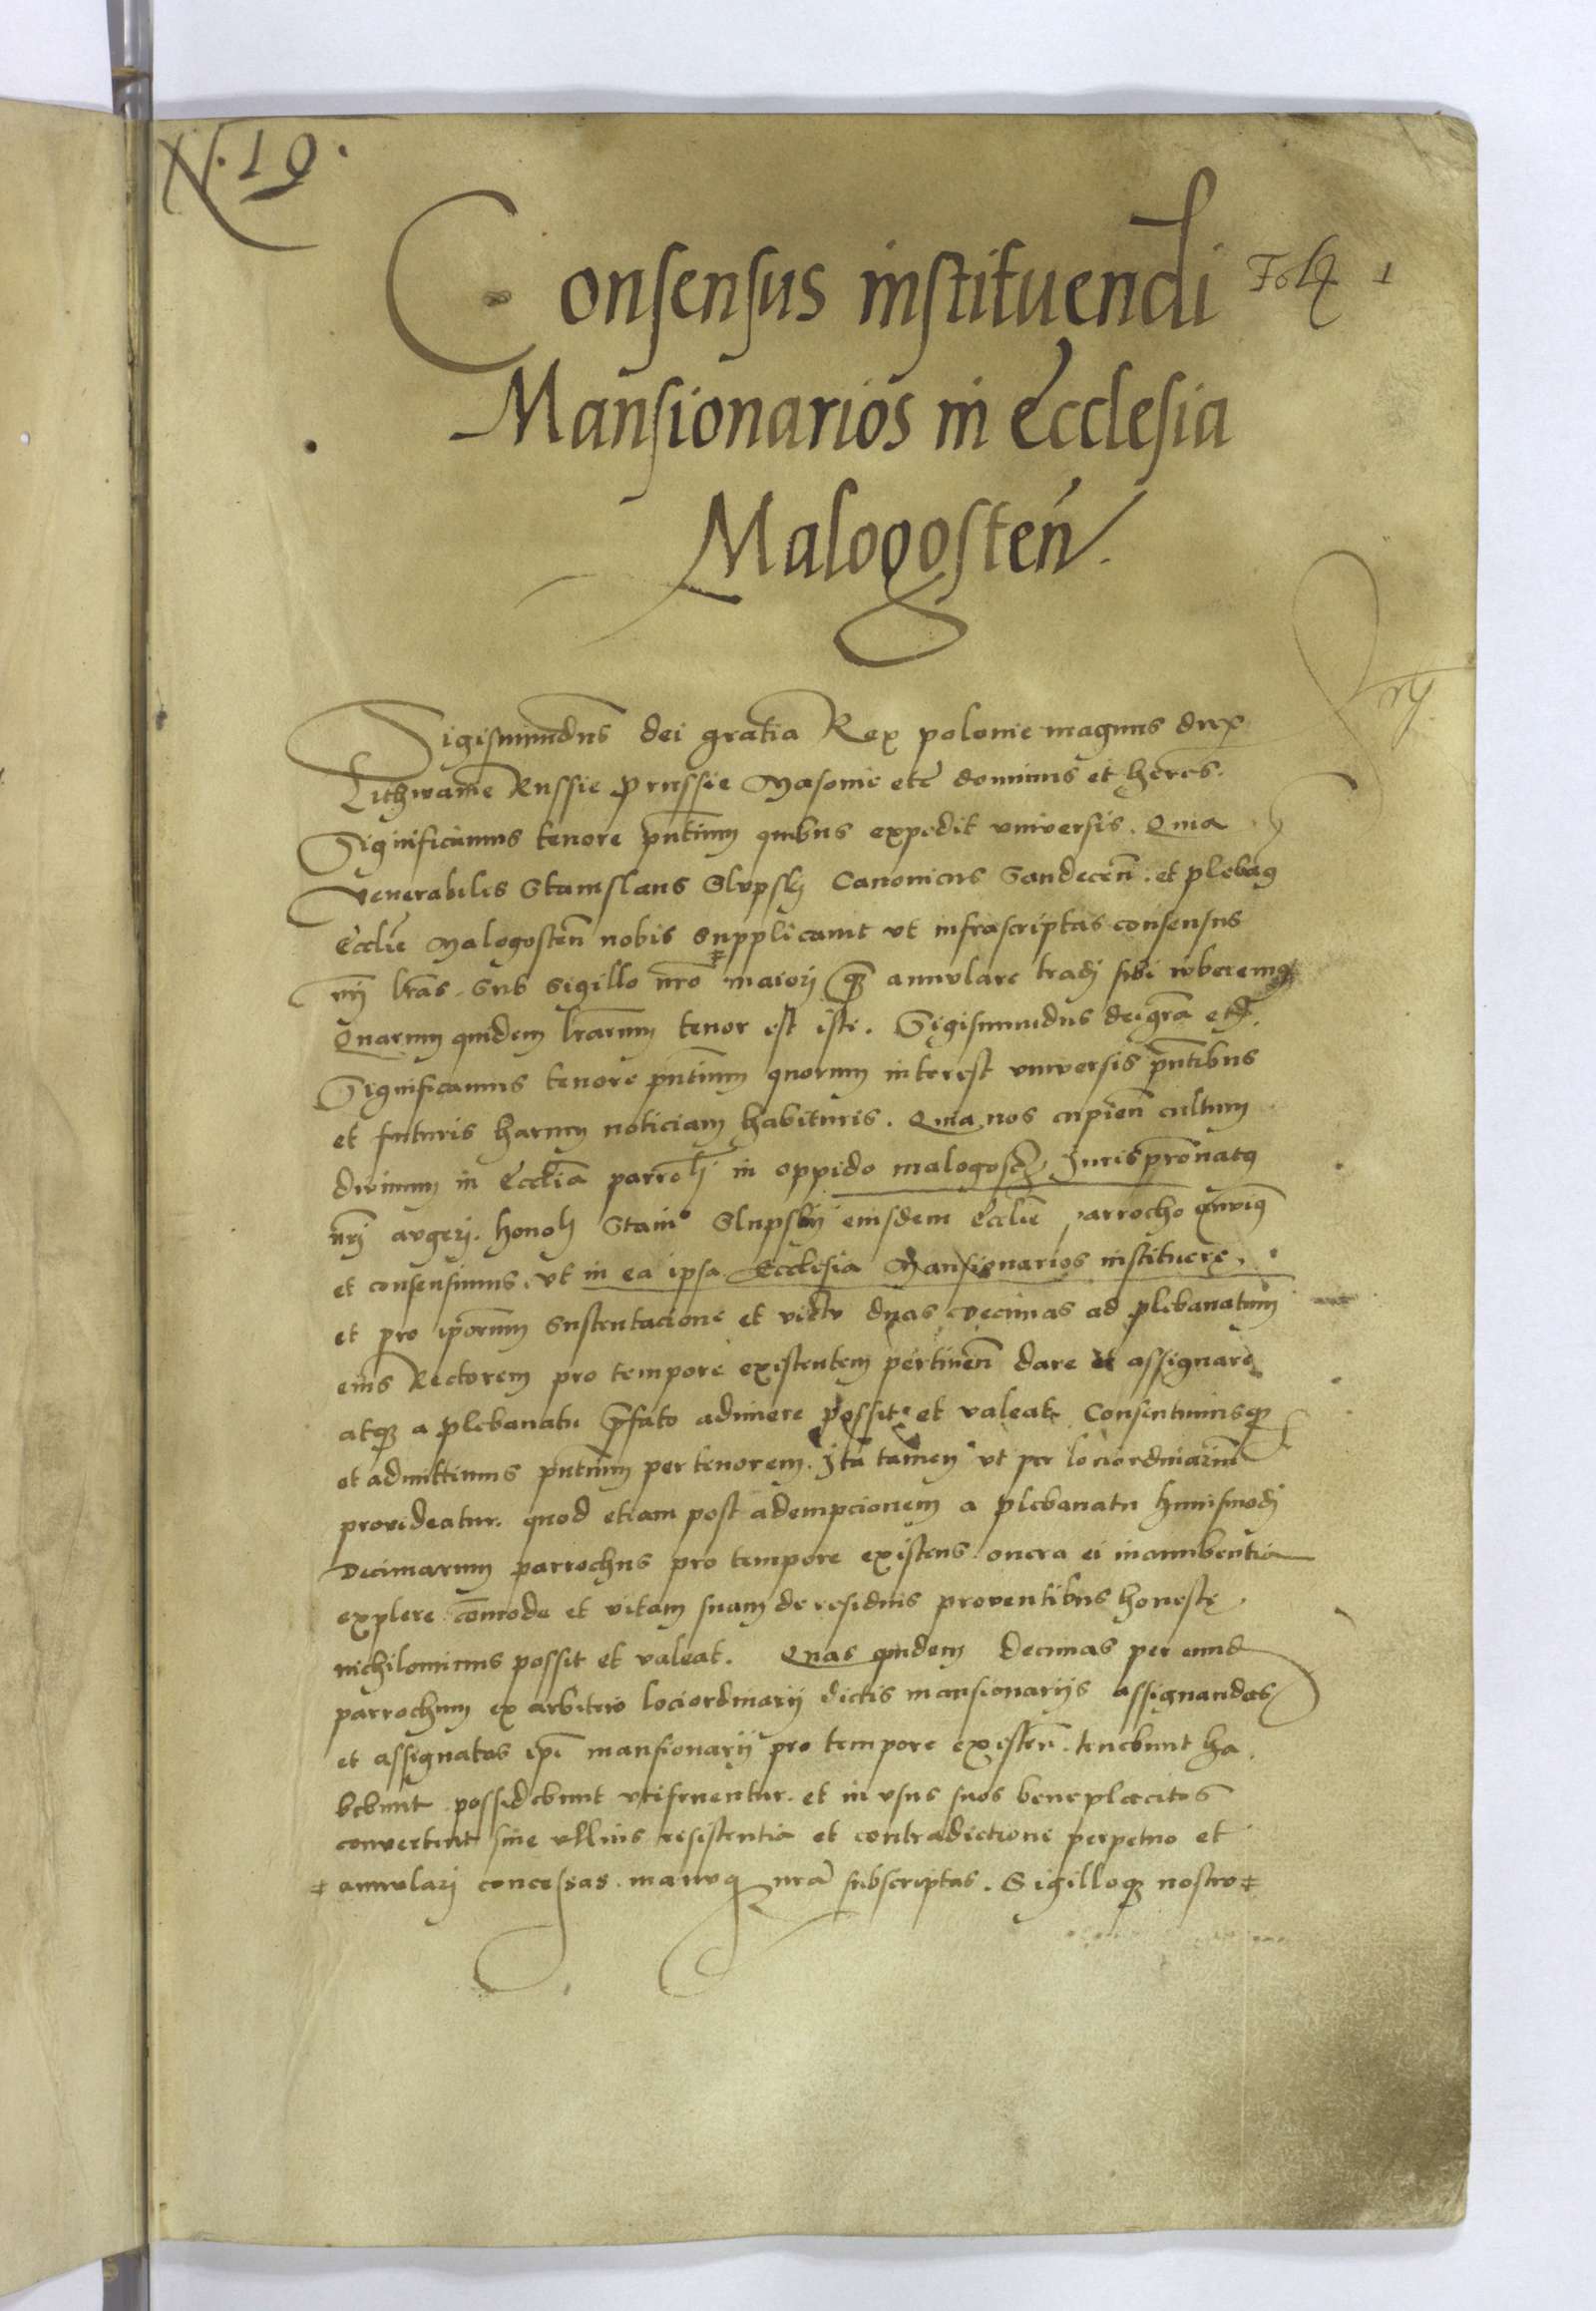 N. 19.
Consensus instituendi
Fol 1
Mansionarios in Ecclesia
Malogosten̄.
Sigismundus dei gratia Rex polonie magnus dux
Lithwanie Russie prussie Masovie etc̄ dominus et heres.
Significamus tenore pn̄tium quibus expedit universis. Quia
venerabilis Stanislaus Slupsky Canonicus Sandecen̄. et plebanꝯ
Ecclīe Malogosten̄ nobis supplicavit ut infrascriptas consensus
nr̄i lr̄as. sub sigillo nr̄o ⧧ maiori q̄ꝫ annulare tradi sibi iuberemꝯ
Quarum quidem lr̄arum tenor est iste. Sigismundus dei gr̄a etc̄.
Significamus tenore pn̄tium quorum interest universis pn̄tibus
et futuris harum noticiam habituris. Quia nos cupien̄ cultum
divinum in Eccl̄ia parroch̄ in oppido malogoscz Jurispatronatꝯ
nr̄i augeri. honoᷓ Stanᵒ Slupsky eiusdem Ecclīe parrocho annuimꝯ
et consensimus. ut in ea ipsa Ecclesia Mansionarios instituere.
et pro ip̄orum sustentacione et victu duas decimas ad plebanatum
eius Rectorem pro tempore existentem pertinen̄ dare et assignare
atqꝫ a plebanatu p̄fato adimere possit et valeat. Consentimusqꝫ
et admittimus pn̄tium per tenorem. Ita tamen ut per lociordinarium
provideatur. quod etiam post adempcionem a plebanatu huiusmodi
Decimarum parrochus pro tempore existens onera ei incumbentia
explere com̄ode et vitam suam de residuis proventibus honeste
nichilominus possit et valeat. Quas quidem Decimas per eund
parrochum ex arbitrio lociordinarii dictis mansionariis assignandas
et assignatas ip̄i mansionarii pro tempore existen̄. tenebunt ha
bebunt possidebunt utifruentur. et in usus suos beneplacitos
convertent sine ullius resistentia et contradictione perpetuo et
⧧ annulari concessas. manuqꝫ nr̄a subscriptas. Sigilloqꝫ nostro ⧧